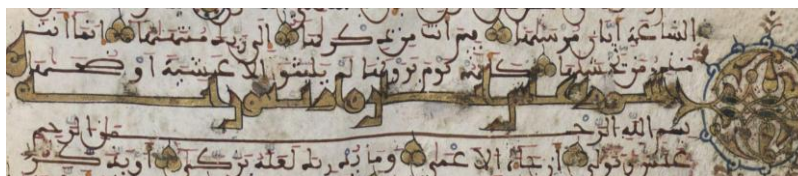 الساعة ايان مرسيها فيم انت من ذكريها الى ربك منتهيها انما انت
منذر من يخشيها كانهم يوم يرونها لم يلبثوا الا عشية او ضحيها
سورة عبس
بسم الله الرحمن الرحيم
عبس وتولى ان جاءه الاعمى وما يدريك لعله يزكى او يذكر